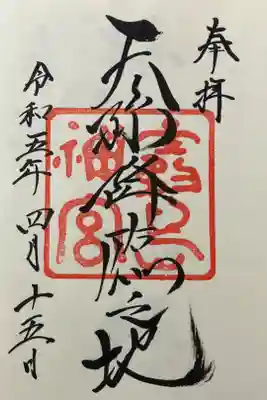 奉拝
天孫降臨之地
令和五年 四月 十五日